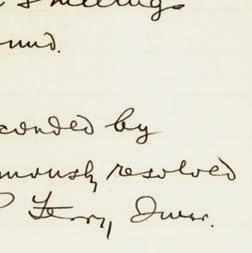 Shillings
ound.
conded by
mously resolved
Ferry